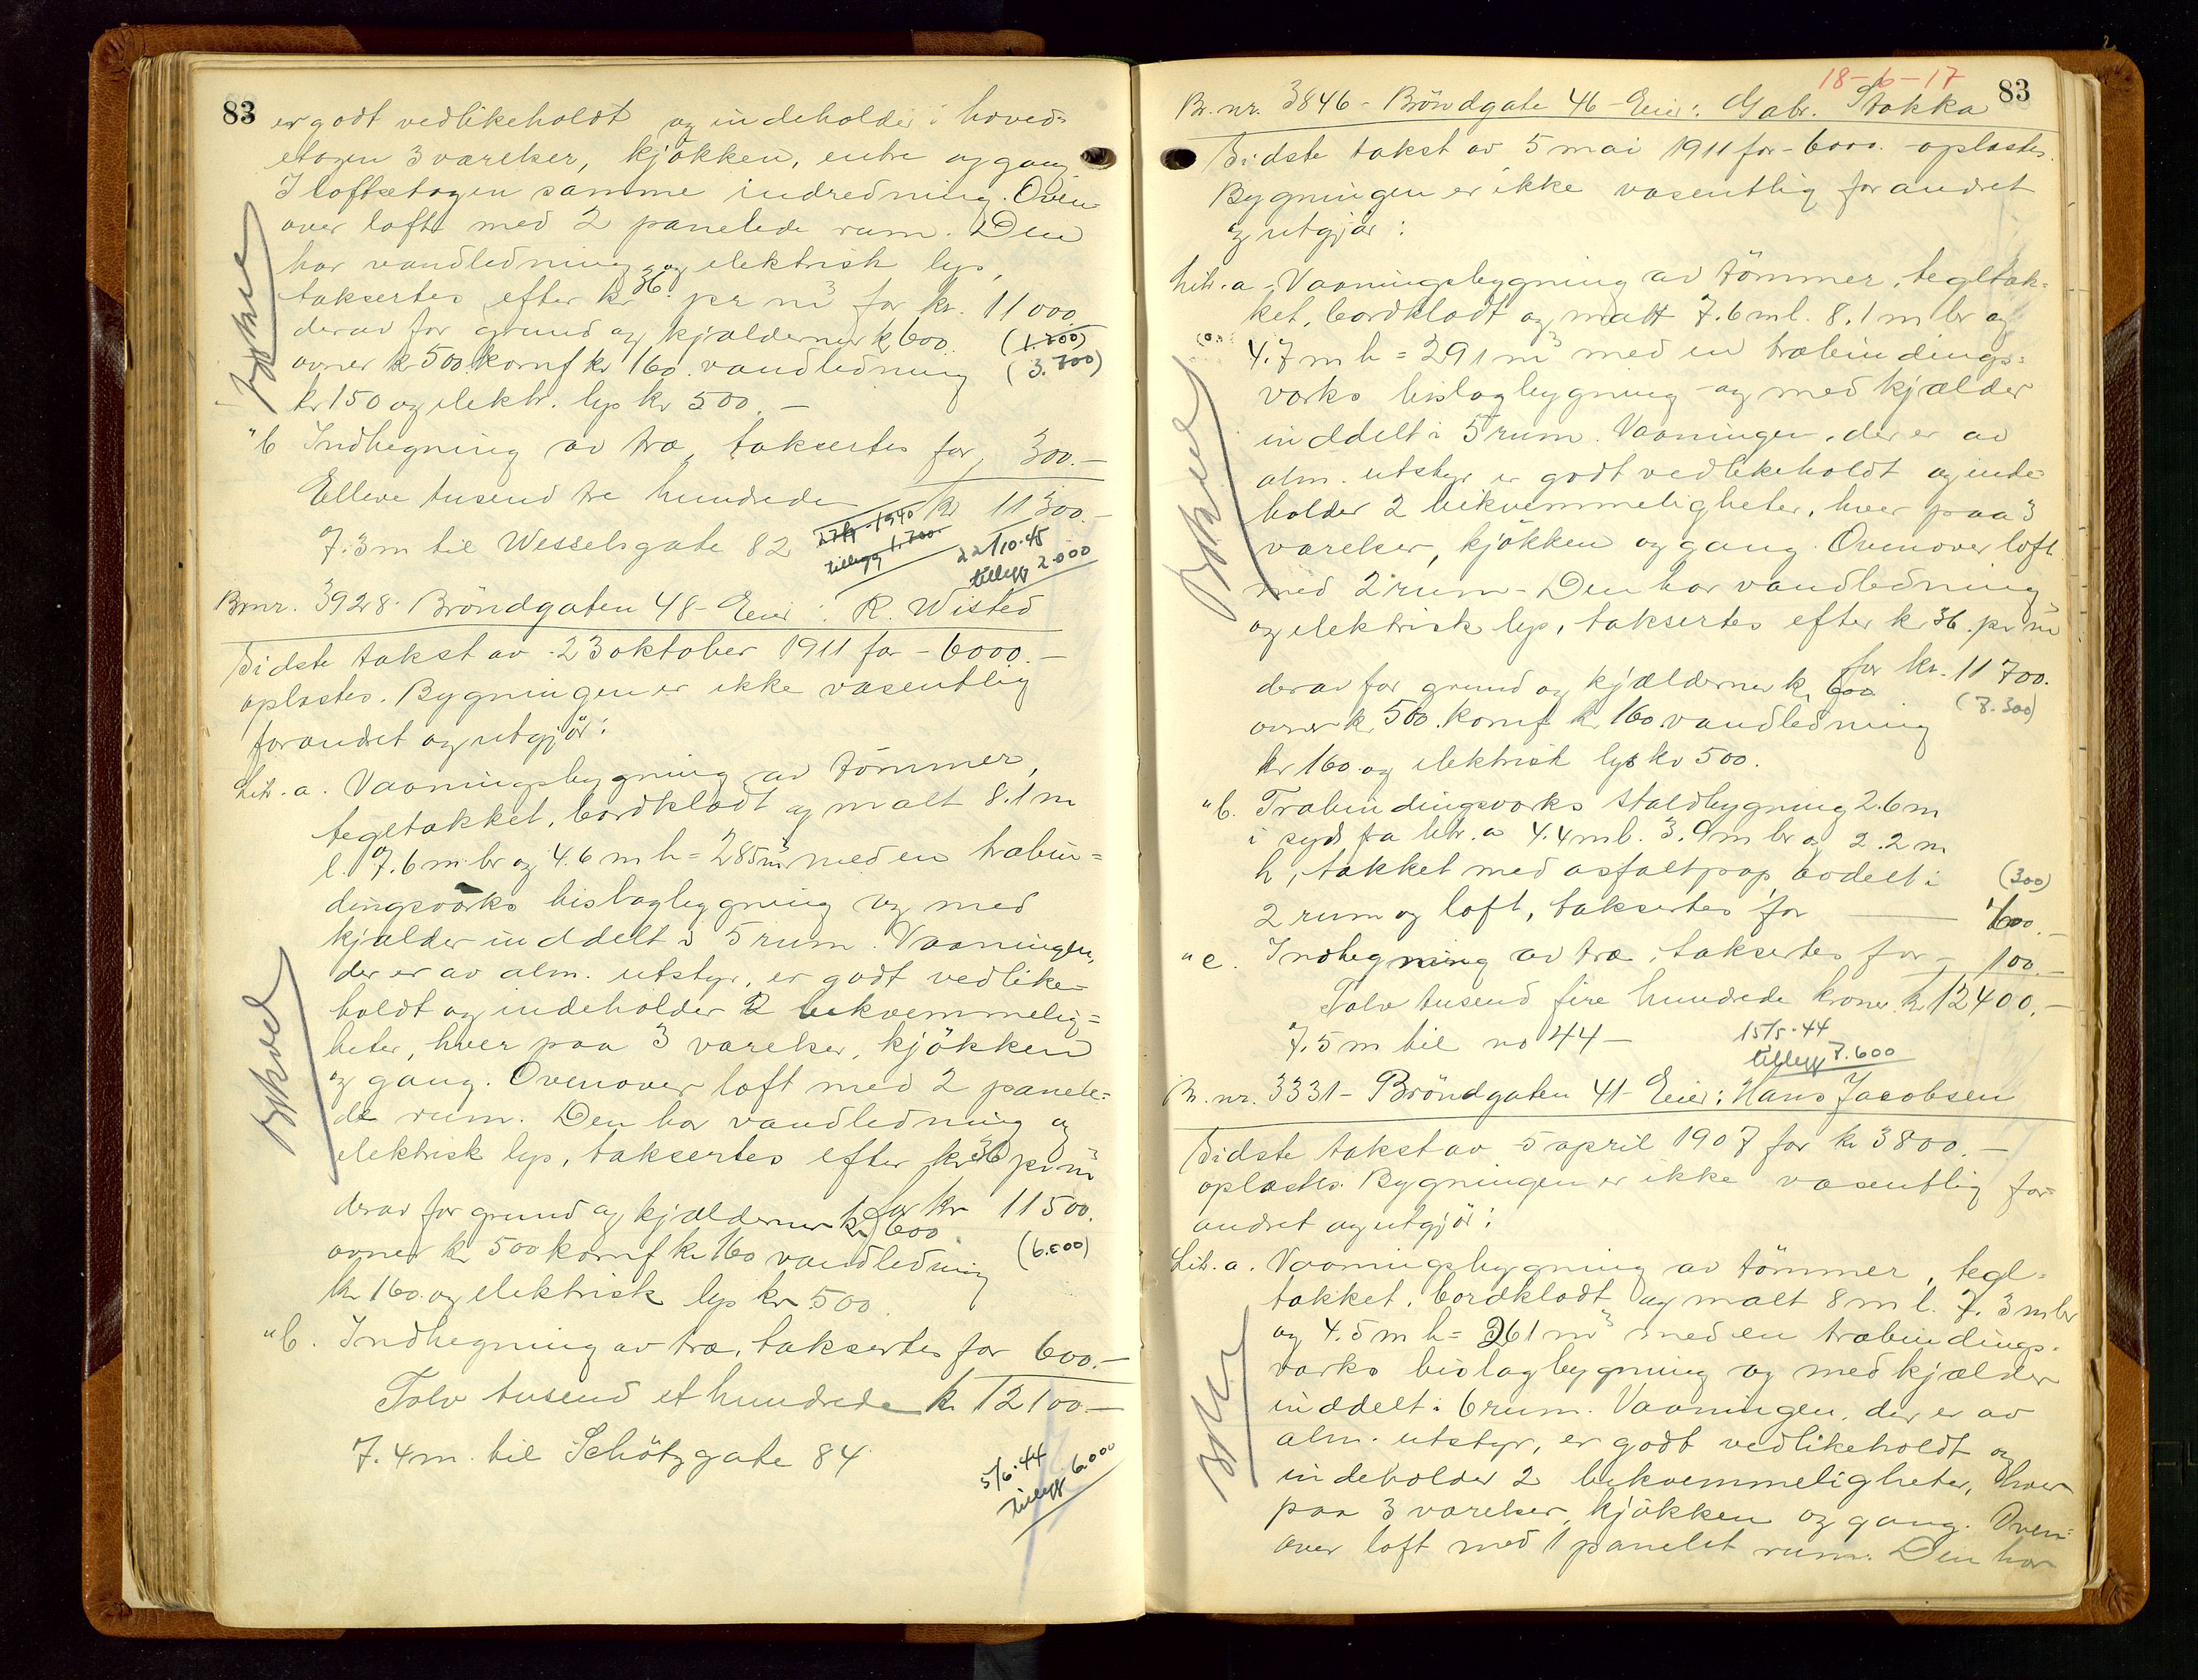 83
er godt vedlikeholdt og indeholder i hoved=
etagen 3 værelser, kjökken, entre og gang
I loftsetagen samme indredning. Oven
over loft med 2 panelede rum. Den
har vandledning og elektrisk lys,
taksertes efter kr 36. pr m³ for kr. 11000
derav for grund og kjælderner kr 600 (1.700)
ovner kr 500. komf kr 160. vandledning (3.700)
kr 150 og elektr. lys kr 500. —
"b Indhegning av træ, taksertes for, 300.—
Elleve tusend tre hundrede kr 11300.—
7.3m til Wesselsgate 82
tillegg 1.700
22/10-45
tillegg 2.000
Br.nr. 3928. Bröndgaten 48 - Eier: R. Wisted
Sidste takst av 23 oktober 1911 for - 6000.—
oplæstes. Bygningen er ikke væsentlig
forandret og utgjör:
Litr. a. Vaaningsbygning av tömmer,
tegltækket, bordklædt og malt 8.1 m
l. 7.6 m br og 4.6 m h = 285 m³ med en træbin=
dingsværks bislagbygning og med
kjælder inddelt i 5 rum. Vaaningen,
der er av alm. utstyr, er godt vedlike=
holdt og indeholder 2 bekvemmelig=
heter, hver paa 3 værelser, kjökken
og gang. Ovenover loft med 2 panele=
de rum. Den har vandledning og
elektrisk lys, taksertes efter kr 36 pr m³
for kr 11500.
derav for grund og kjælderner kr 600
ovner kr 500 komf kr 160 vandledning (6.000)
kr 160. og elektrisk lys kr 500.
"b. Indhegning av træ, taksertes for 600.—
Tolv tusend et hundrede kr 12100—
7.4m. til Schötzgate 84
5/6-44
tillegg 6.000
18-6-17
83
Br. nr. 3846 - Bröndgate 46 - Eier: Gabr. Stokka
Sidste takst av 5 mai 1911 for - 6000. - oplæstes.
Bygningen er ikke væsentlig forandret
og utgjör:
Litr. a. Vaaningsbygning av tömmer, tegltæk=
ket, bordklædt og malt 7.6 m l. 8.1 m br og
4.7 m h = 291 m³ med en træbindings=
værks bislagbygning og med kjælder
inddelt i 5 rum. Vaaningen, der er av
alm. utstyr er godt vedlikeholdt og inde=
holder 2 bekvemmeligheter, hver paa 3
værelser, kjökken og gang. Ovenover loft
med 2 rum - Den har vandledning
og elektrisk lys, taksertes efter kr 36. pr m³
for kr. 11700.
derav for grund og kjælderner kr 600
ovner kr 500. komf kr 160 vandledning (7.300)
kr 160. og elektrisk lys kr 500.
"b. Træbindingsværks staldbygning 2.6m
i syd fra litr. a 4.4 m l. 3.9 m br og 2.2 m
h, tækket med asfaltpap, avdelt i (300)
2 rum og loft, taksertes for — 600.—
"c. Indhegning av træ, taksertes for, 100.—
Tolv tusend fire hundrede kroner kr 12400.—
7.5 m til no 44 —
15/5-44
tillegg 7.600
Br. nr. 3331 - Bröndgaten 41 - Eier: Hans Jacobsen
Sidste takst av 5 april 1907 for kr 3800. —
oplæstes. Bygningen er ikke væsentlig for=
andret og utgjör:
Litr. a. Vaaningsbygning av tömmer, tegl=
tækket, bordklædt og malt 8 m l. 7.3 m br
og 4.5 m h = 261 m³ med en træbindings=
værks bislagbygning og med kjælder
inddelt i 6 rum. Vaaningen, der er av
alm. utstyr, er godt vedlikeholdt og
indeholder 2 bekvemmeligheter, hver
paa 3 værelser, kjökken og gang. Oven=
over loft med 1 panelet rum. Den har